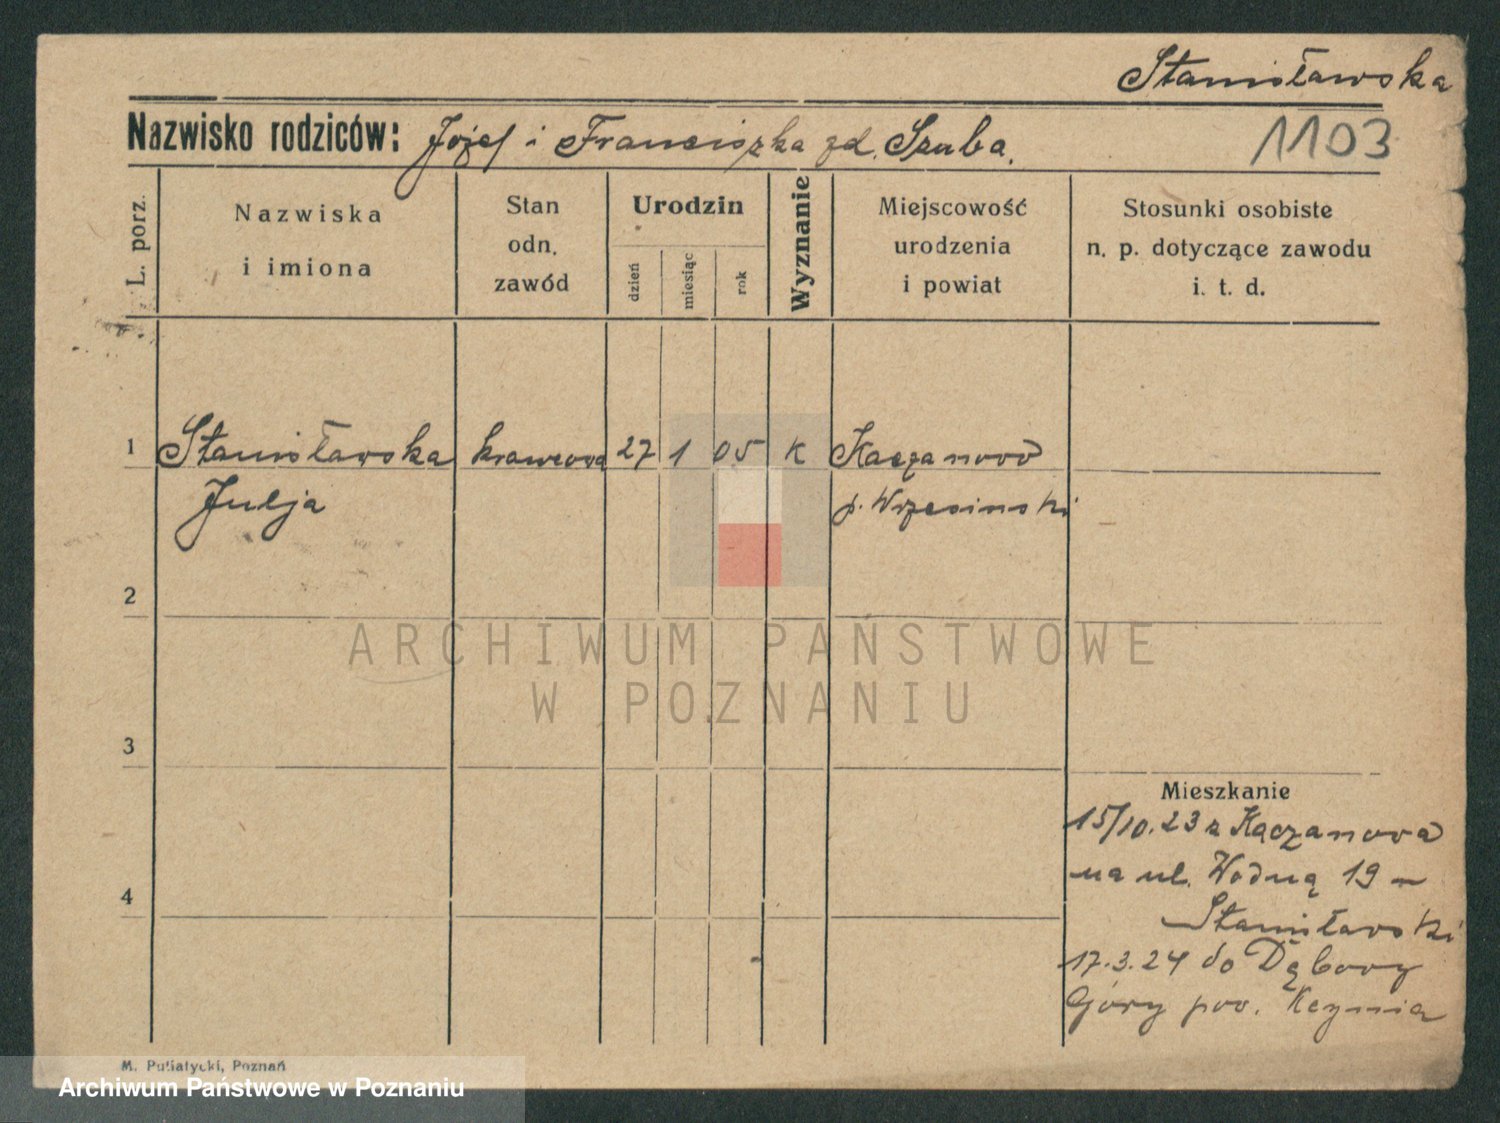 Stanisławska
Nazwisko rodziców: Józef i Franciszka zd. Szuba.
1103
L. porz.
Nazwiska
i imiona
Stan
odn.
zawód
Urodzin
dzień
miesiąc
rok
Wyznanie
Miejscowość
urodzenia
i powiat
Stosunki osobiste
n. p. dotyczące zawodu
i. t. d.
1 Stanisławska krawcowa 27 1 05 K Kaczanowo
Julja p. Wrzesinski
2
ARCHIWUM PAŃSTWOWE
W POZNANIU
3
Mieszkanie
15/10.23 z Kączanowa
na ul. Wodną 19 –
4
Stanisławski
17.3.24 do Dąbowy
Góry pow. Kcynia
M. Putiatycki, Poznań
Archiwum Państwowe w Poznaniu